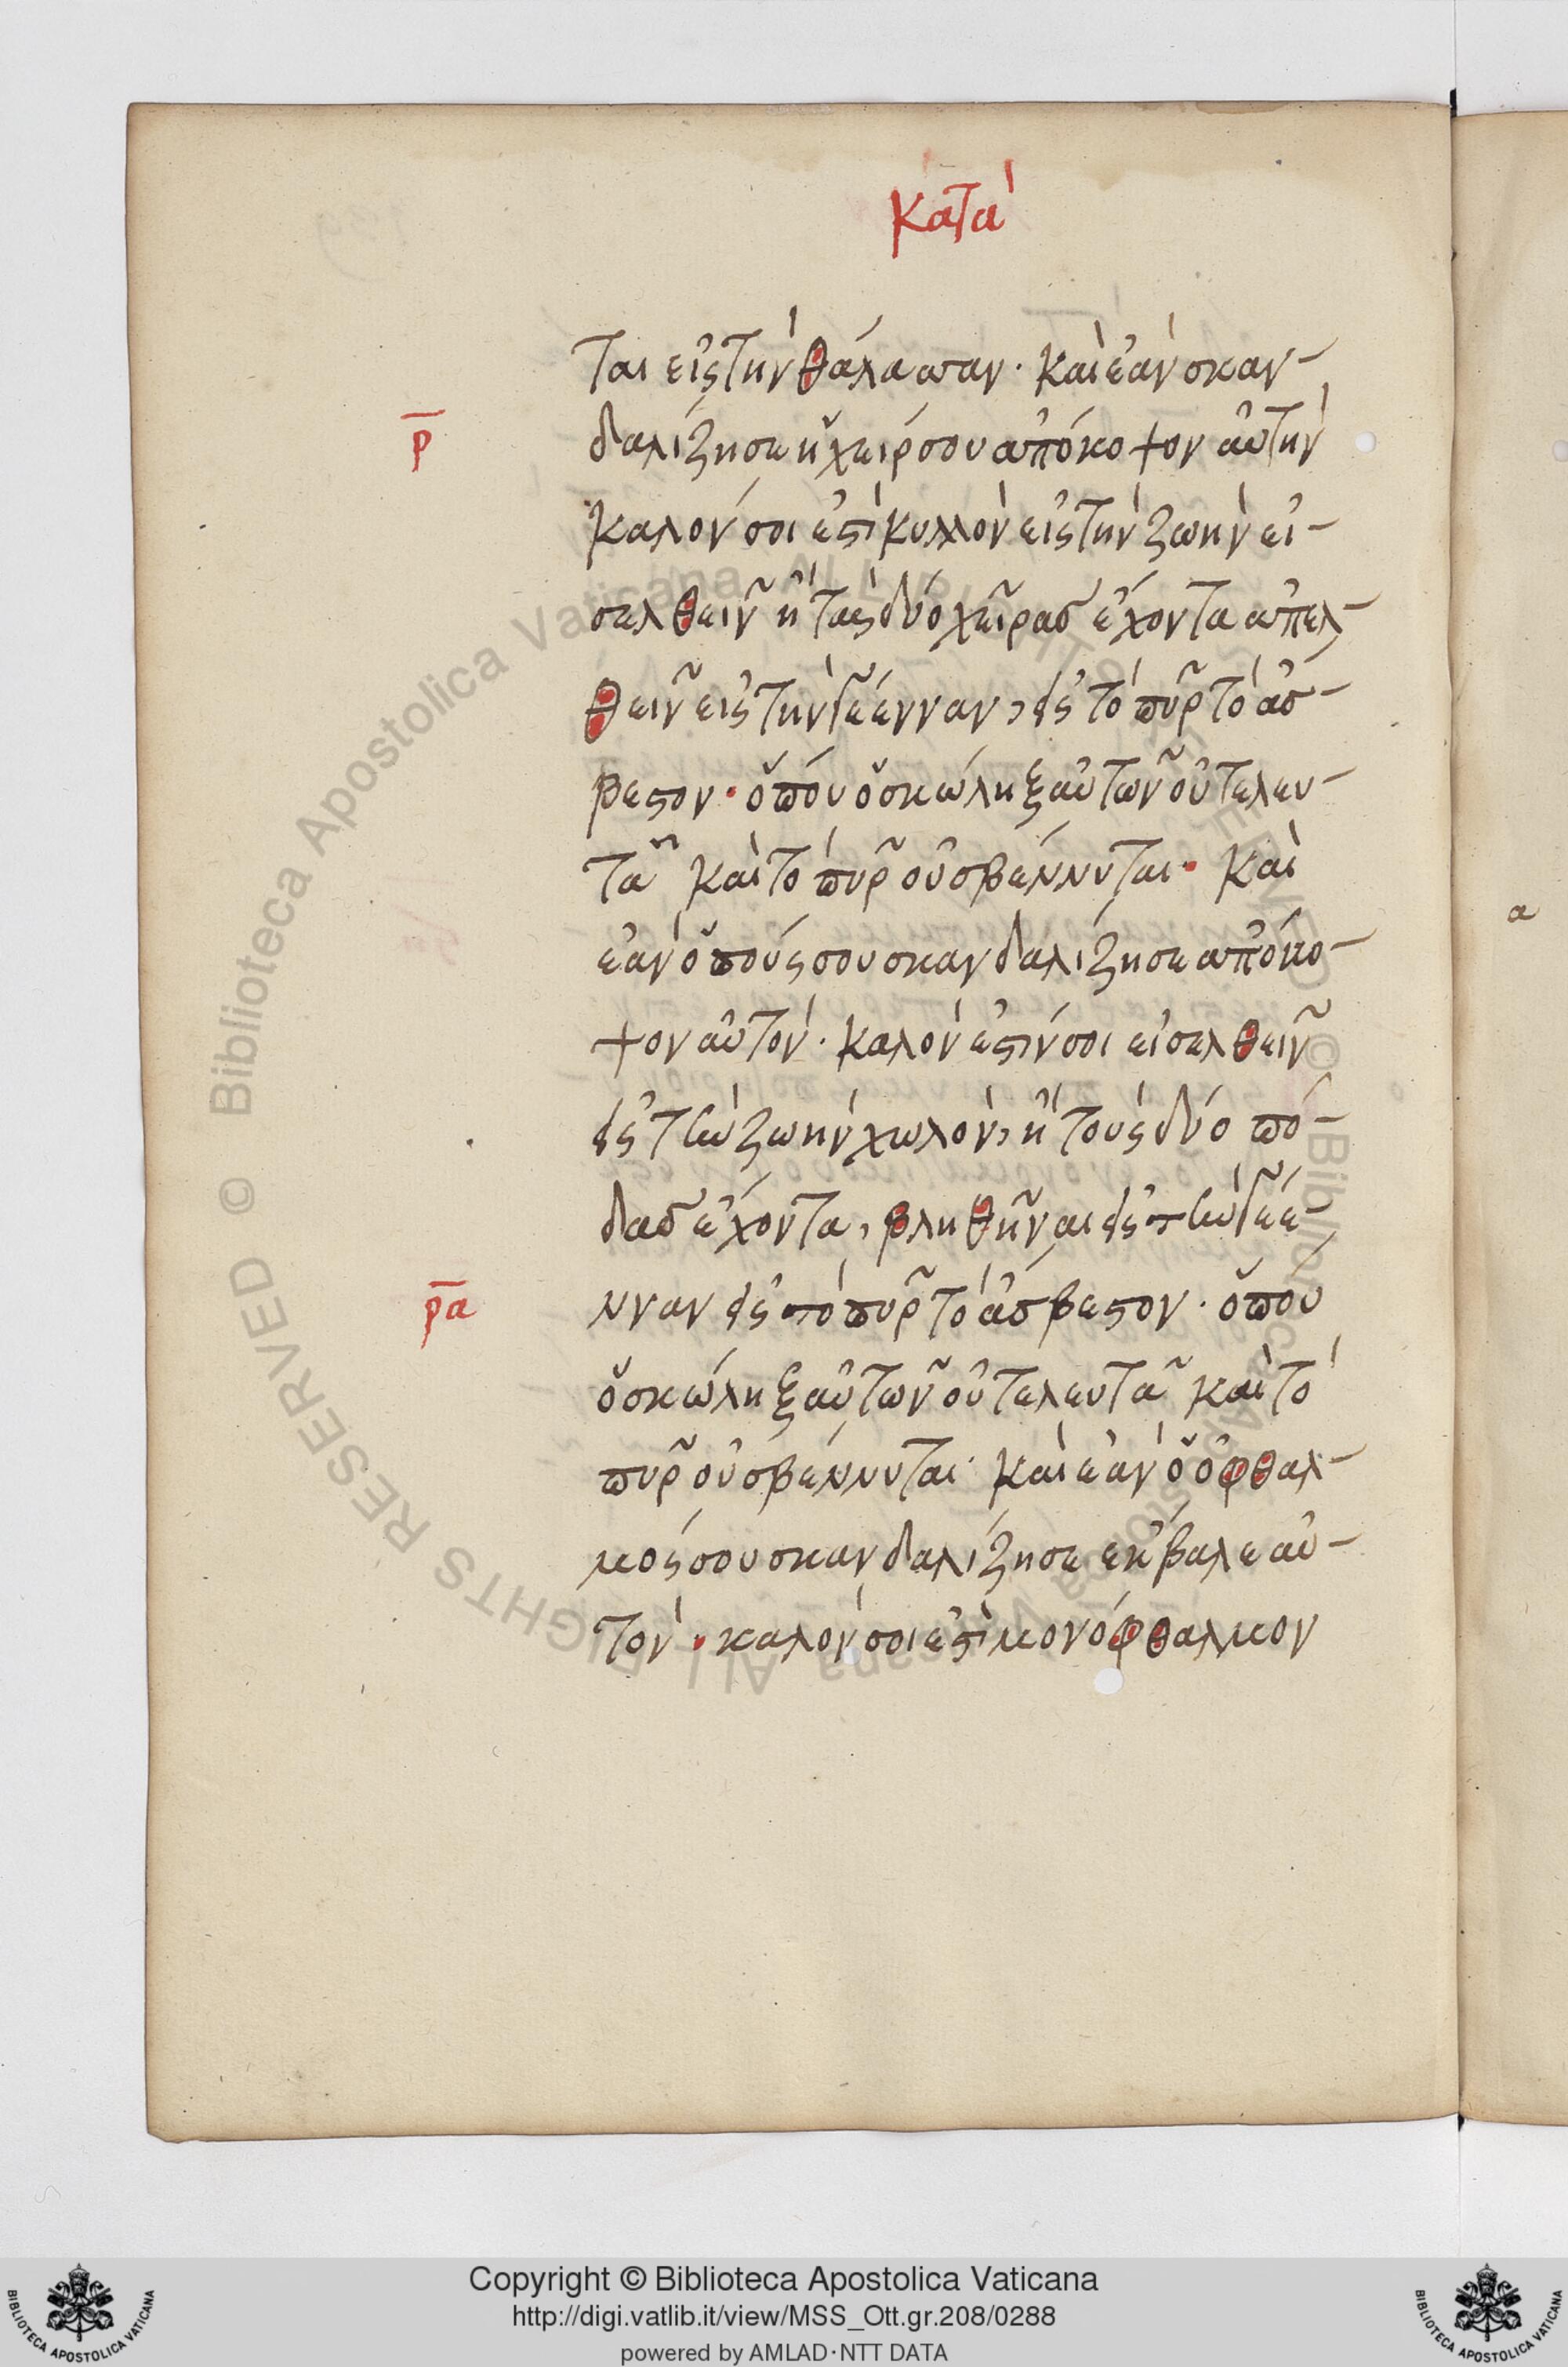 Κατὰ
ται εἰς τὴν θάλασσαν. καὶ ἐὰν σκαν-
ρ
δαλίζη σε ἡ χείρ σου ἀπόκοψον αὐτὴν
καλόν σοι ἐστὶ κυλλὸν εἰς τὴν ζωὴν εἰ-
σελθεῖν ἢ τὰς δύο χεῖρας ἔχοντα ἀπελ-
θεῖν εἰς τὴν γέενναν, εἰς τὸ πῦρ τὸ ἄσ-
βεστον. ὅπου ὁ σκώληξ αὐτῶν οὐ τελευ-
τᾶ καὶ τὸ πῦρ οὐ σβέννυται. καὶ
ἐὰν ὁ πούς σου σκανδαλίζη σε ἀπόκο-
ψον αὐτόν. καλόν ἐστίν σοι εἰσελθεῖν
εἰς τὴν ζωὴν χωλὸν, ἢ τοὺς δύο πό-
δας ἔχοντα, βληθῆναι εἰς τὴν γέε-
ρα
νναν εἰς τὸ πῦρ τὸ ἄσβεστον. ὅπου
ὁ σκώληξ αὐτῶν οὐ τελευτᾶ καὶ τὸ
πῦρ οὐ σβέννυται. καὶ ἐὰν ὁ ὀφθαλ-
μός σου σκανδαλίζη σε ἔκβαλε αὐ-
τόν. καλόν σοι ἐστὶ μονόφθαλμον
α
Copyright © Biblioteca Apostolica Vaticana
http://digi.vatlib.it/view/MSS_Ott.gr.208/0288
powered by AMLAD·NTT DATA
BIBLIOTECA APOSTOLICA VATICANA
BIBLIOTECA APOSTOLICA VATICANA
© Biblioteca Apostolica Vaticana ALL RIGHTS RESERVED © Biblioteca Apostolica Vaticana ALL RIGHTS RESERVED